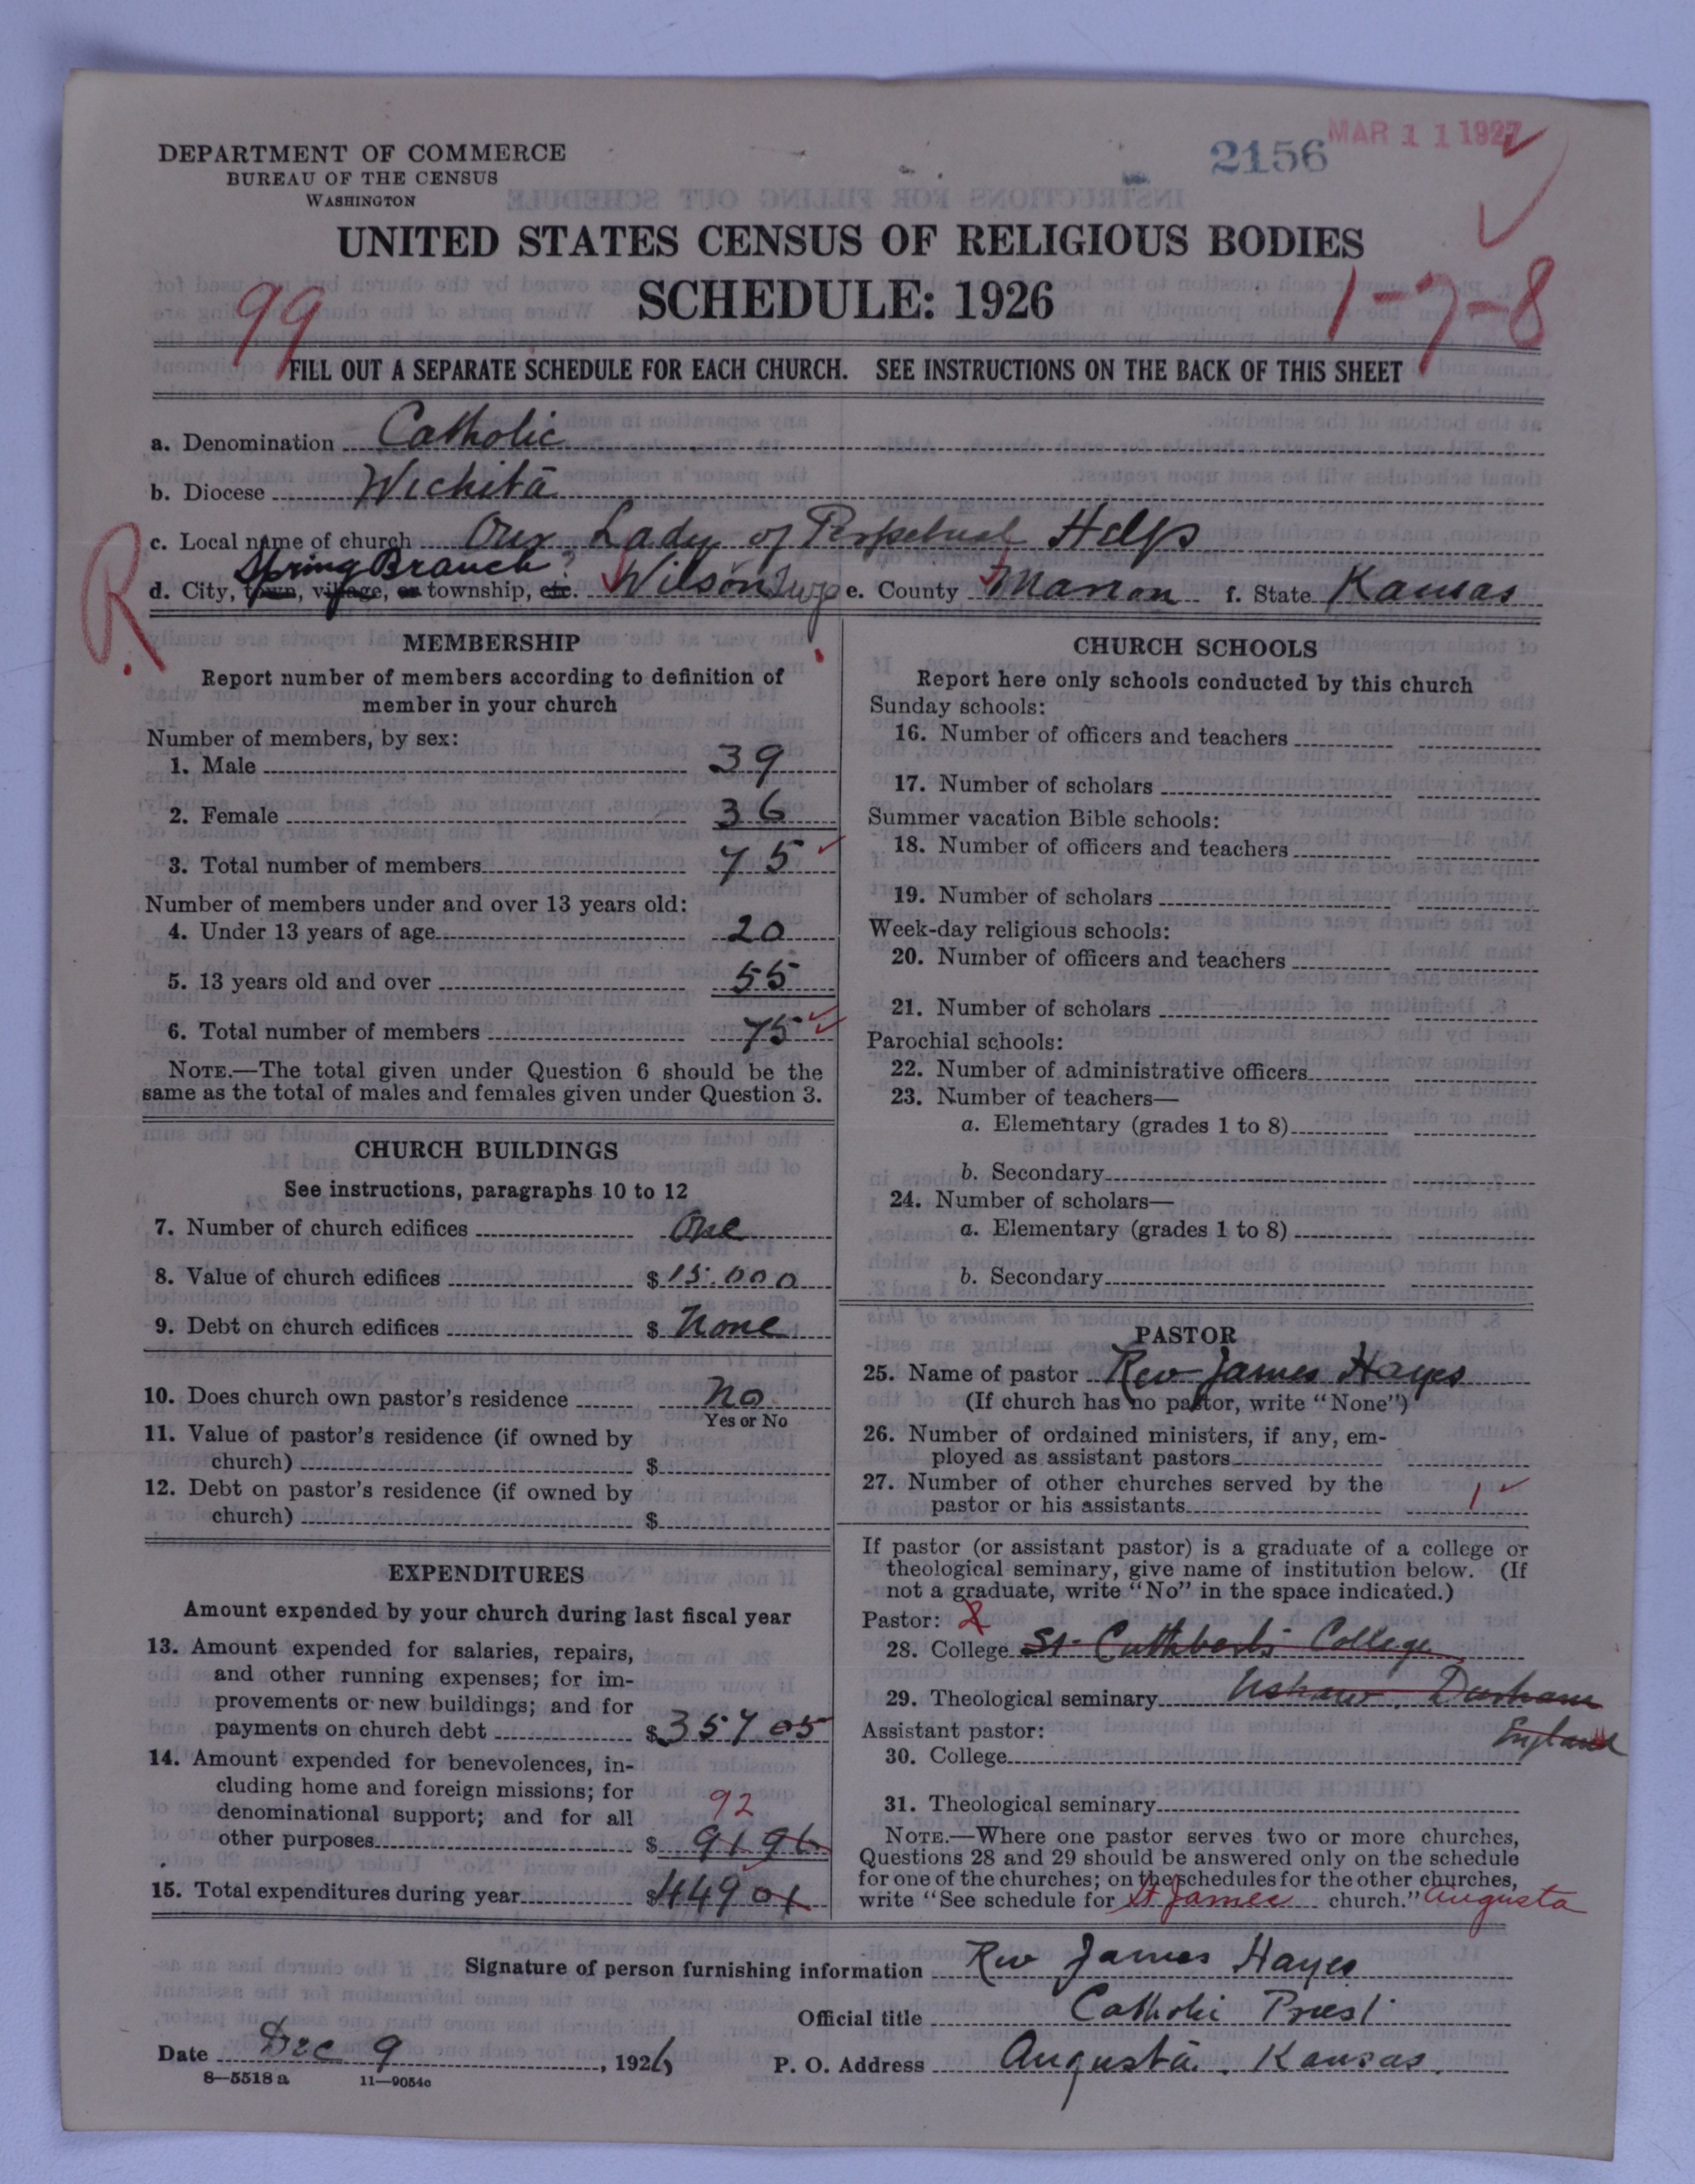 DEPARTMENT OF COMMERCE
BUREAU OF THE CENSUS
WASHINGTON
2156
MAR 11 1927
UNITED STATES CENSUS OF RELIGIOUS BODIES
SCHEDULE: 1926
99
1-7-8
FILL OUT A SEPARATE SCHEDULE FOR EACH CHURCH. SEE INSTRUCTIONS ON THE BACK OF THIS SHEET
a. Denomination Catholic
b. Diocese Wichita
c. Local name of church Our Lady of Perpetual Help
Spring Branch
R
d. City, town, village, or township, etc. Wilson Twp e. County Marion f. State Kansas
MEMBERSHIP
Report number of members according to definition of
member in your church
Number of members, by sex:
1. Male 39
2. Female 36
3. Total number of members 75
Number of members under and over 13 years old:
4. Under 13 years of age 20
5. 13 years old and over 55
6. Total number of members 75
NOTE.—The total given under Question 6 should be the
same as the total of males and females given under Question 3.
CHURCH BUILDINGS
See instructions, paragraphs 10 to 12
7. Number of church edifices One
8. Value of church edifices $ 15.000
9. Debt on church edifices $ None
10. Does church own pastor's residence No
Yes or No
11. Value of pastor's residence (if owned by
church) $
12. Debt on pastor's residence (if owned by
church) $
EXPENDITURES
Amount expended by your church during last fiscal year
13. Amount expended for salaries, repairs,
and other running expenses; for im-
provements or new buildings; and for
payments on church debt $ 357 05
14. Amount expended for benevolences, in-
cluding home and foreign missions; for
denominational support; and for all
92
other purposes $ 91 96
15. Total expenditures during year $ 449 01
CHURCH SCHOOLS
Report here only schools conducted by this church
Sunday schools:
16. Number of officers and teachers
17. Number of scholars
Summer vacation Bible schools:
18. Number of officers and teachers
19. Number of scholars
Week-day religious schools:
20. Number of officers and teachers
21. Number of scholars
Parochial schools:
22. Number of administrative officers
23. Number of teachers—
a. Elementary (grades 1 to 8)
b. Secondary
24. Number of scholars—
a. Elementary (grades 1 to 8)
b. Secondary
PASTOR
25. Name of pastor Rev James Hayes
(If church has no pastor, write "None")
26. Number of ordained ministers, if any, em-
ployed as assistant pastors
27. Number of other churches served by the
pastor or his assistants 1
If pastor (or assistant pastor) is a graduate of a college or
theological seminary, give name of institution below. (If
not a graduate, write "No" in the space indicated.)
Pastor: 2
28. College St. Cuthberts College
29. Theological seminary Ushaw, Durham
England
Assistant pastor:
30. College
31. Theological seminary
NOTE.—Where one pastor serves two or more churches,
Questions 28 and 29 should be answered only on the schedule
for one of the churches; on the schedules for the other churches,
write "See schedule for St James church." Augusta
Signature of person furnishing information Rev James Hayes
Official title Catholic Priest
Date Dec 9, 1926 P. O. Address Augusta, Kansas
8—5518 a 11—9054c